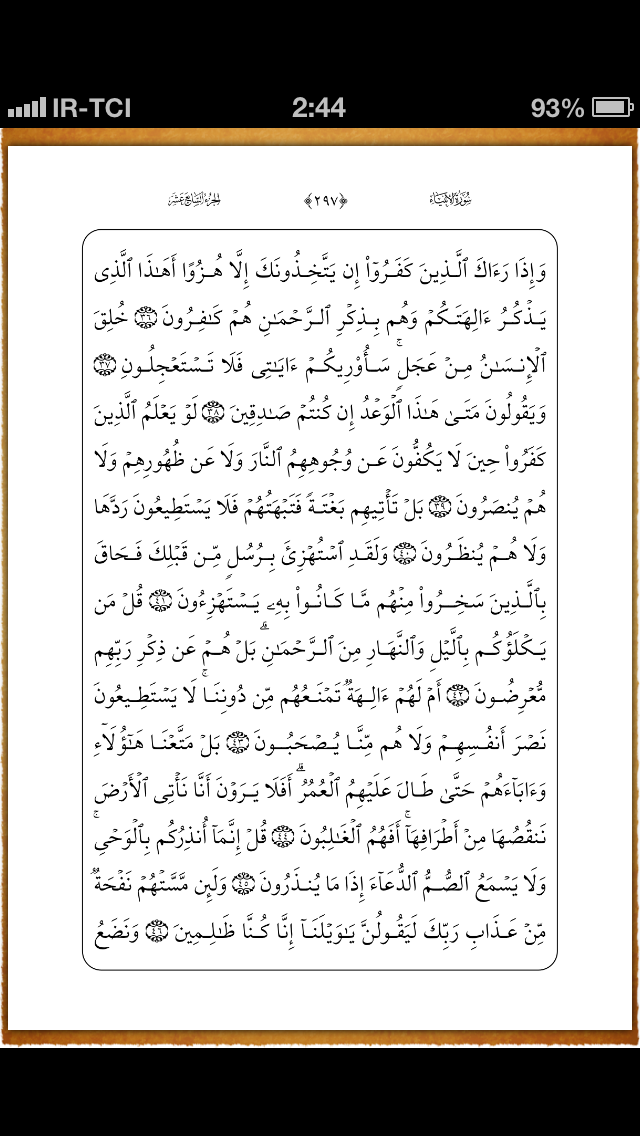 IR-TCI 2:44 93%
سُورَةُ الأَنبِيَاء ﴿٢٩٧﴾ الجُزءُ السَّابِعَ عَشَرَ
وَإِذَا رَءَاكَ ٱلَّذِينَ كَفَرُوٓا۟ إِن يَتَّخِذُونَكَ إِلَّا هُزُوًا أَهَـٰذَا ٱلَّذِى
يَذۡكُرُ ءَالِهَتَكُمۡ وَهُم بِذِكۡرِ ٱلرَّحۡمَـٰنِ هُمۡ كَـٰفِرُونَ ٣٦ خُلِقَ
ٱلۡإِنسَـٰنُ مِنۡ عَجَلٍۚ سَأُو۟رِيكُمۡ ءَايَـٰتِى فَلَا تَسۡتَعۡجِلُونِ ٣٧
وَيَقُولُونَ مَتَىٰ هَـٰذَا ٱلۡوَعۡدُ إِن كُنتُمۡ صَـٰدِقِينَ ٣٨ لَوۡ يَعۡلَمُ ٱلَّذِينَ
كَفَرُوا۟ حِينَ لَا يَكُفُّونَ عَن وُجُوهِهِمُ ٱلنَّارَ وَلَا عَن ظُهُورِهِمۡ وَلَا
هُمۡ يُنصَرُونَ ٣٩ بَلۡ تَأۡتِيهِم بَغۡتَةً فَتَبۡهَتُهُمۡ فَلَا يَسۡتَطِيعُونَ رَدَّهَا
وَلَا هُمۡ يُنظَرُونَ ٤٠ وَلَقَدِ ٱسۡتُهۡزِئَ بِرُسُلٍ مِّن قَبۡلِكَ فَحَاقَ
بِٱلَّذِينَ سَخِرُوا۟ مِنۡهُم مَّا كَانُوا۟ بِهِۦ يَسۡتَهۡزِءُونَ ٤١ قُلۡ مَن
يَكۡلَؤُكُم بِٱلَّيۡلِ وَٱلنَّهَارِ مِنَ ٱلرَّحۡمَـٰنِۗ بَلۡ هُمۡ عَن ذِكۡرِ رَبِّهِم
مُّعۡرِضُونَ ٤٢ أَمۡ لَهُمۡ ءَالِهَةٌ تَمۡنَعُهُم مِّن دُونِنَاۚ لَا يَسۡتَطِيعُونَ
نَصۡرَ أَنفُسِهِمۡ وَلَا هُم مِّنَّا يُصۡحَبُونَ ٤٣ بَلۡ مَتَّعۡنَا هَـٰٓؤُلَآءِ
وَءَابَآءَهُمۡ حَتَّىٰ طَالَ عَلَيۡهِمُ ٱلۡعُمُرُۗ أَفَلَا يَرَوۡنَ أَنَّا نَأۡتِى ٱلۡأَرۡضَ
نَنقُصُهَا مِنۡ أَطۡرَافِهَآۚ أَفَهُمُ ٱلۡغَـٰلِبُونَ ٤٤ قُلۡ إِنَّمَآ أُنذِرُكُم بِٱلۡوَحۡىِۚ
وَلَا يَسۡمَعُ ٱلصُّمُّ ٱلدُّعَآءَ إِذَا مَا يُنذَرُونَ ٤٥ وَلَئِن مَّسَّتۡهُمۡ نَفۡحَةٌ
مِّنۡ عَذَابِ رَبِّكَ لَيَقُولُنَّ يَـٰوَيۡلَنَآ إِنَّا كُنَّا ظَـٰلِمِينَ ٤٦ وَنَضَعُ